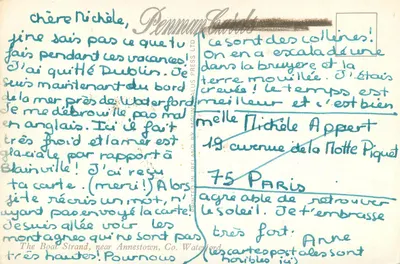 chère Michèle,
je ne sais pas ce que tu
fais pendant ces vacances!
J'ai quitté Dublin. Je
suis maintenant du bord
de la mer près de Waterford
je me débrouille, pas mal
en anglais. Ici il fait
très froid et la mer est
glaciale par rapport à
Blainville! J'ai reçu
ta carte. (merci!) Alors
je te récris un mot, n'
ayant pas envoyé la carte!
Je suis allée voir les
montagnes qui ne sont pas
très hautes! Pour nous
Penman Cards
ce sont des collines!
On en a escaladé une
dans la bruyère et la
terre mouillée. J'étais
crevée! Le temps est
meilleur et c'est bien
melle Michèle Appert
19 avenue de la Motte Piquet
75 PARIS
agréable de retrouver
le soleil. Je t'embrasse
très fort.
Anne
(les cartes postales sont
horribles ici)
The Boat Strand, near Annestown, Co. Waterford
PRESS LTD